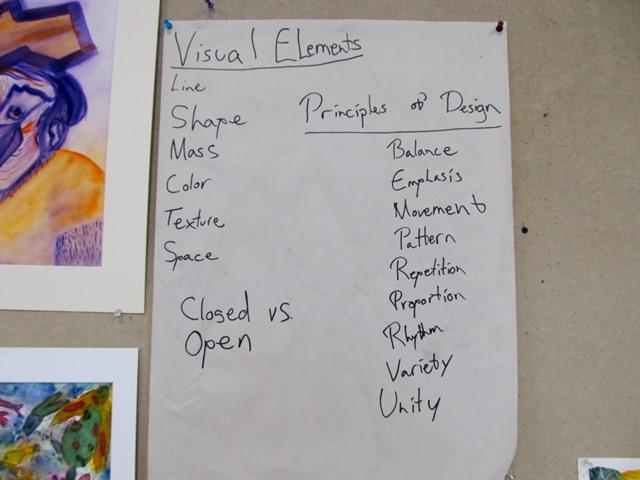 Visual Elements
Line
Shape
Mass
Color
Texture
Space
Closed vs.
Open
Principles of Design
Balance
Emphasis
Movement
Pattern
Repetition
Proportion
Rhythm
Variety
Unity